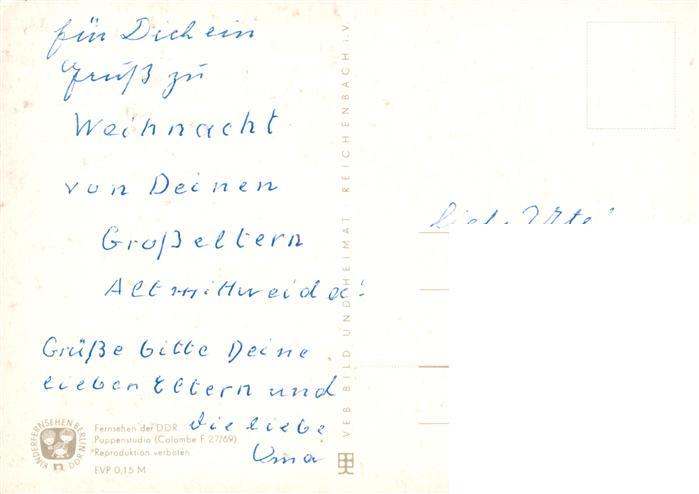 für Dich ein
Gruß zu
Weihnacht
von Deinen
Großeltern
Altmittweida!
Grüße bitte Deine
lieben Eltern und
die liebe
Oma
KINDERFERNSEHEN BERLIN DDR
Fernsehen der DDR
Puppenstudio (Colombe F 27/69)
Reproduktion verboten
EVP 0,15 M
VEB BILD UND HEIMAT · REICHENBACH i. V.